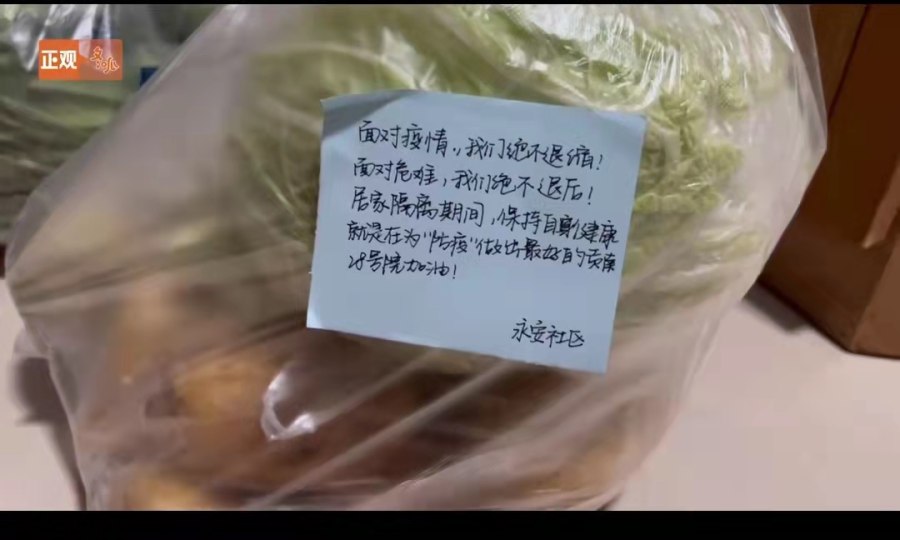 正观
面对疫情,我们绝不退缩!
面对危难,我们绝不退后!
居家隔离期间,保持自身健康
就是在为"防疫"做出最好的贡献
28号院加油!
永安社区